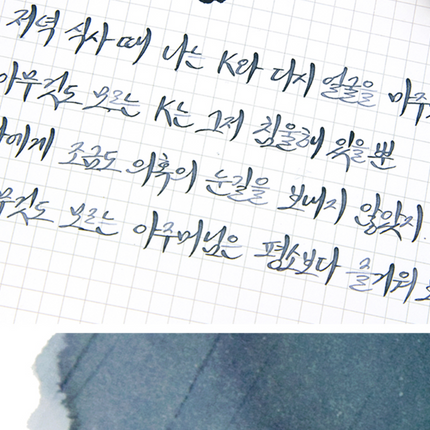 저녁 식사 때 나는 K와 다시 얼굴을 마주
아무것도 모르는 K는 그저 침울해 있을 뿐
에게 조금도 의혹의 눈길을 보내지 않았지
것도 모르는 아주머님은 평소보다 즐거워